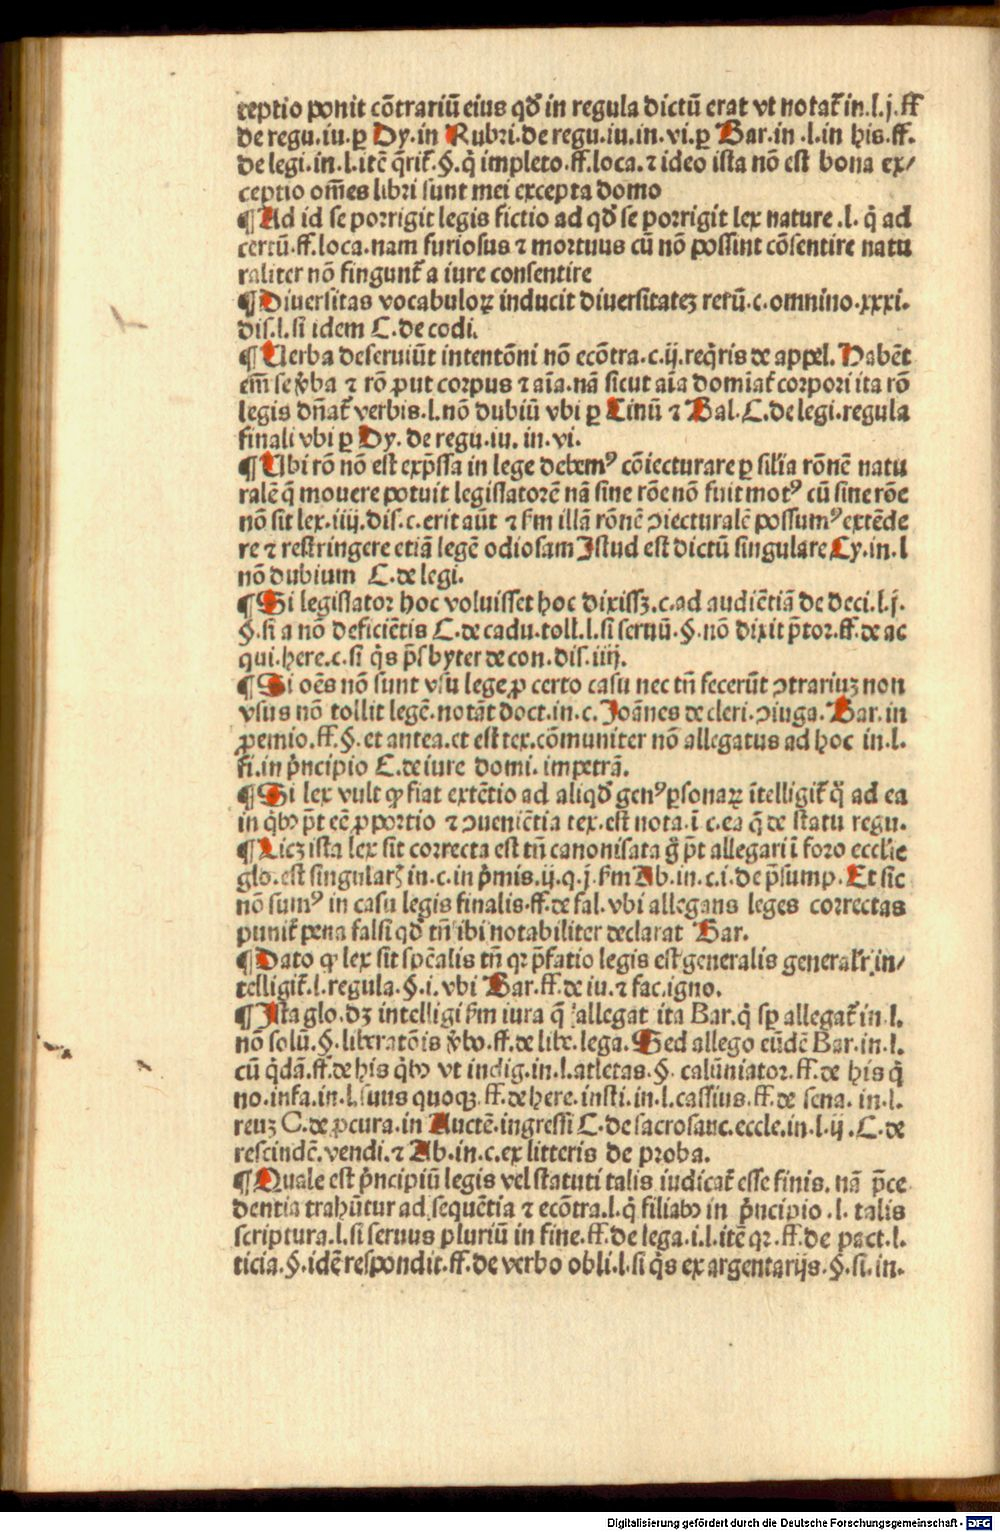 ceptio ponit cõtrariũ eius qď in regula dictũ erat vt notať in.l.j.ff
de regu.iu.ꝑ Dy.in Rubri.de regu.iu.in.vi.ꝑ Bar.in .l.in his.ff.
de legi.in.l.itẽ q̃riť.§.q̇ impleto.ff.loca.⁊ ideo ista nõ est bona ex/
ceptio om̃es libri sunt mei excepta domo
¶Ad id se porrigit legis fictio ad qď se porrigit lex nature .l. q̇ ad
certũ.ff.loca.nam furiosus ⁊ mortuus cũ nõ possint cõsentire natu
raliter nõ fingunť a iure consentire
¶Diuersitas vocabuloꝝ inducit diuersitateʒ rerũ.c.omnino.xxxi.
dis.l.si idem C.de codi.
¶Verba deseruiũt intentõni nõ ecõtra.c.ij.req̇ris de appel. Habẽt
em̃ se v̾ba ⁊ rõ ꝓut corpus ⁊ aĩa.nã sicut aĩa domĩať corpori ita rõ
legis dñať verbis.l.nõ dubiũ vbi ꝑ Cinũ ⁊ Bal.C.de legi.regula
finali vbi ꝑ Dy. de regu.iu. in. vi.
¶Vbi rõ nõ est exp̃ssa in lege debemꝰ cõiecturare ꝑ silĩa rõnẽ natu
ralẽ q̃ mouere potuit legislatorẽ nã sine rõe nõ fuit motꝰ cũ sine rõe
nõ sit lex.iiij.dis.c.erit aũt ⁊ ẜm illã rõnẽ ꝯiecturalẽ possumꝰ extẽde
re ⁊ restringere etiã legẽ odiosam Istud est dictũ singulare Cy.in.l
nõ dubium C.de legi.
¶Si legislator hoc voluisset hoc dixissʒ.c.ad audiẽtiã de deci.l.j.
§.si a nõ deficiẽtis C.de cadu.toll.l.si seruũ.§.nõ dixit p̃tor.ff.de ac
qui.here.c.si q̇s p̃sbyter de con.dis.iiij.
¶Si oẽs nõ sunt vsu lege ꝓ certo casu nec tñ fecerũt ꝯtrariuʒ non
vsus nõ tollit legẽ.notãt doct.in.c.Joãnes de cleri.ꝯiuga.Bar.in
ꝓemio.ff.§.et antea.et est tex.cõmuniter nõ allegatus ad hoc in.l.
fi.in pⁱncipio C.de iure domi.impetrã.
¶Si lex vult ꝙ fiat extẽtio ad aliqď genꝰ ꝑsonaꝝ ĩtelligiť q̃ ad ea
in q̇bꝫ p̃t eẽ ꝓportio ⁊ ꝯueniẽtia tex.est nota.ĩ c.ea q̃ de statu regu.
¶Licʒ ista lex sit correcta est tñ canonisata g̃ p̃t allegari ĩ foro ecclie
glo.est singularʒ in.c.in pⁱmis.ij.q.j.ẜm Ab.in.c.i.de p̃sump.Et sic
nõ sumꝰ in casu legis finalis.ff.de fal.vbi allegans leges correctas
puniť pena falsi qď tñ ibi notabiliter declarat Bar.
¶Dato ꝙ lex sit spẽalis tñ qꝛ p̃fatio legis est generalis generalr̃ in/
telligiť.l.regula.§.i.vbi Bar.ff.de iu.⁊ fac.igno.
¶Ista glo.dʒ intelligi ẜm iura q̃ allegat ita Bar.q̇ sꝑ allegať in.l.
nõ solũ.§.liberatõis v̾bo.ff.de libe.lega.Sed allego eũdẽ Bar.in.l.
cũ q̇dã.ff.de his q̇bꝫ vt indig.in.l.atletas.§. calũniator.ff.de his q̇
no.infa.in.l.suus quoqꝫ.ff.de here.insti.in.l.cassius.ff.de sena. in.l.
reuʒ C.de ꝓcura.in Auctẽ.ingressi C.de sacrosanc.eccle.in.l.ij.C.de
rescindẽ.vendi.⁊ Ab.in.c.ex litteris de proba.
¶Quale est pⁱncipiũ legis vel statuti talis iudicať esse finis.nã p̃ce
dentia trahũtur ad sequẽtia ⁊ ecõtra.l.q̇ filiabꝫ in pⁱncipio .l. talis
scriptura.l.si seruus pluriũ in fine.ff.de lega.i.l.itẽ qꝛ.ff.de pact.l.
ticia.§.idẽ respondit.ff.de verbo obli.l.si q̇s ex argentarijs.§.si.in.
Digitalisierung gefördert durch die Deutsche Forschungsgemeinschaft - DFG